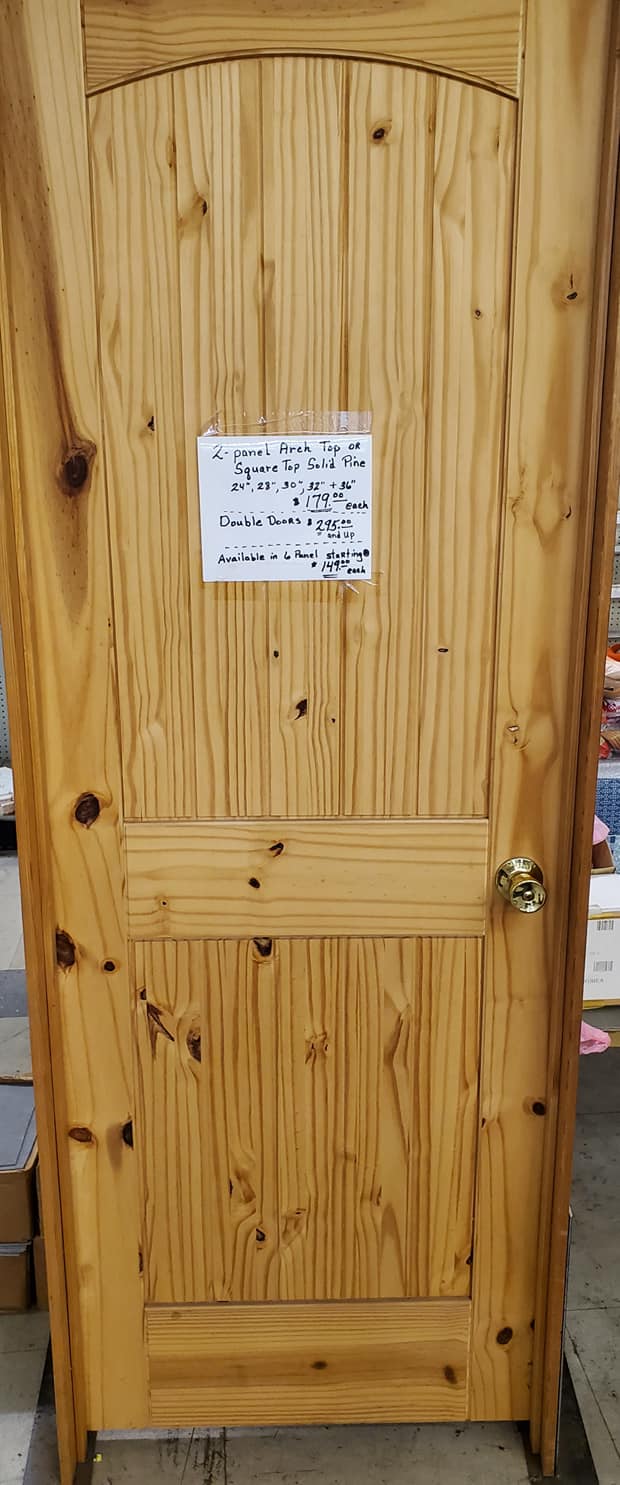 2-panel Arch Top or
Square Top Solid Pine
24", 28", 30", 32" + 36"
$179.00 each
Double Doors $295.00
and up
Available in 6 Panel starting @
$149.00 each